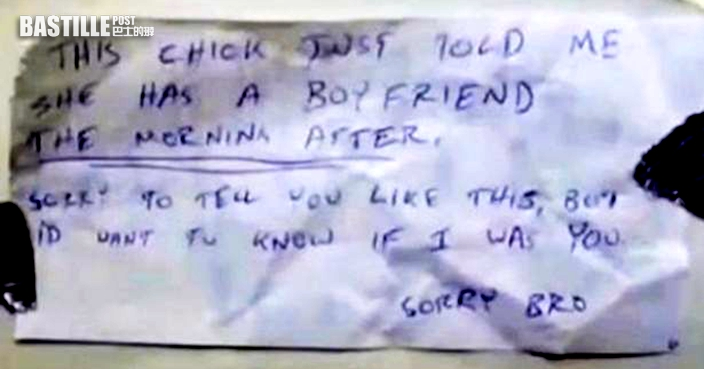 BASTILLE POST
巴士的報
THIS CHICK JUST TOLD ME
SHE HAS A BOYFRIEND
THE MORNING AFTER.
SORRY TO TELL YOU LIKE THIS, BUT
ID WANT TO KNOW IF I WAS YOU.
SORRY BRO